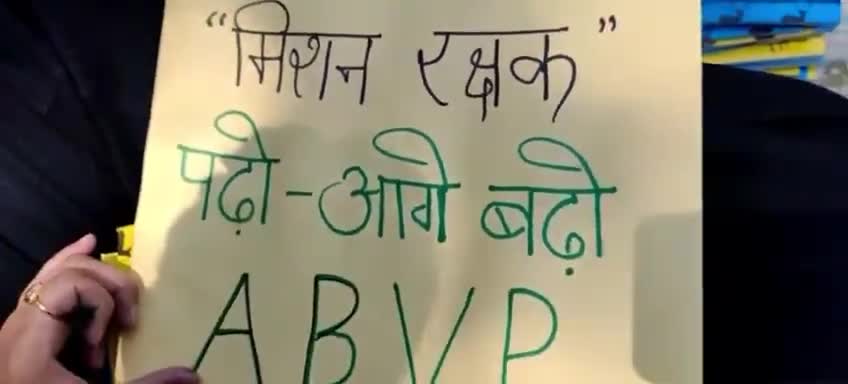 “मिशन रक्षक”
पढ़ो - आगे बढ़ो
A B V P